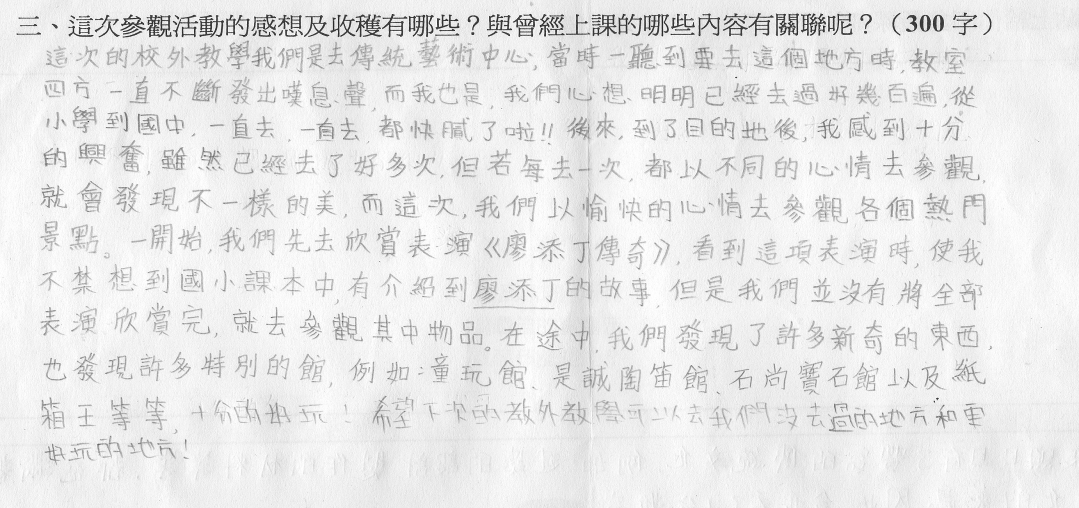 三、這次參觀活動的感想及收穫有哪些？與曾經上課的哪些內容有關聯呢？（300 字）
這次的校外教學我們是去傳統藝術中心，當時一聽到要去這個地方時，教室
四方一直不斷發出嘆息聲，而我也是，我們心想明明已經去過好幾百遍，從
小學到國中，一直去，一直去，都快膩了啦!! 後來，到了目的地後，我感到十分
的興奮，雖然已經去了好多次，但若每去一次，都以不同的心情去參觀，
就會發現不一樣的美，而這次，我們以愉快的心情去參觀各個熱門
景點。一開始，我們先去欣賞表演《廖添丁傳奇》，看到這項表演時，使我
不禁想到國小課本中，有介紹到廖添丁的故事，但是我們並沒有將全部
表演欣賞完，就去參觀其中物品。在途中，我們發現了許多新奇的東西，
也發現許多特別的館，例如：童玩館、是誠陶笛館、石尚寶石館以及紙
箱王等等，十分的好玩！希望下次的教外教學可以去我們沒去過的地方和更
好玩的地方！